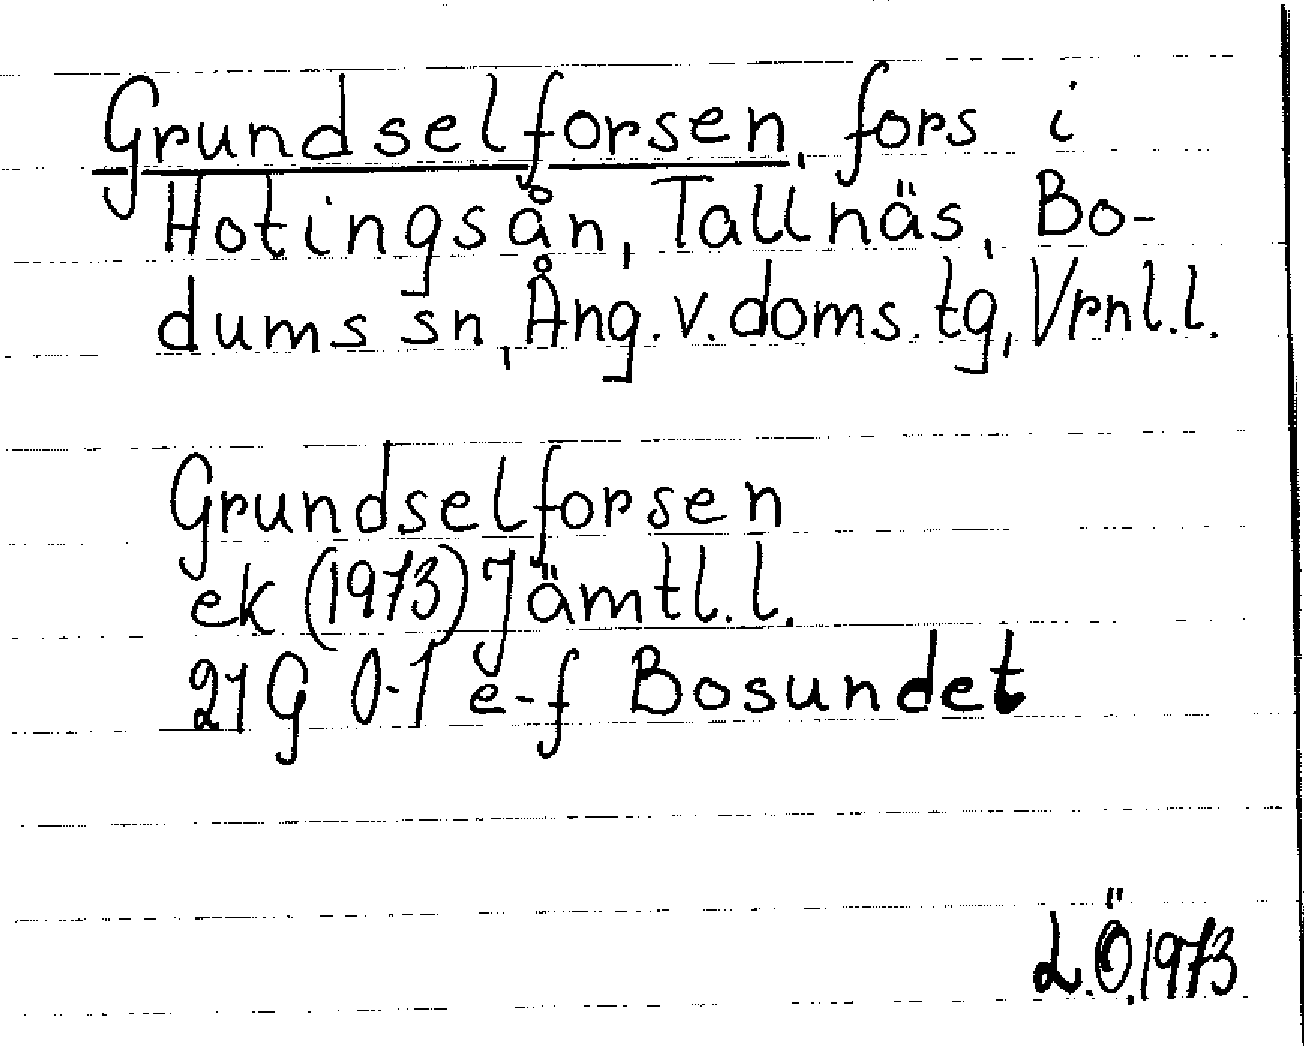 Grundselforsen, fors i
Hotingsån, Tallnäs, Bo-
dums sn, Ång. v. doms. tg, Vrnl. l.
Grundselforsen
ek (1973) Jämtl. l.
21G 0-1 e-f Bosundet
L.Ö.1973